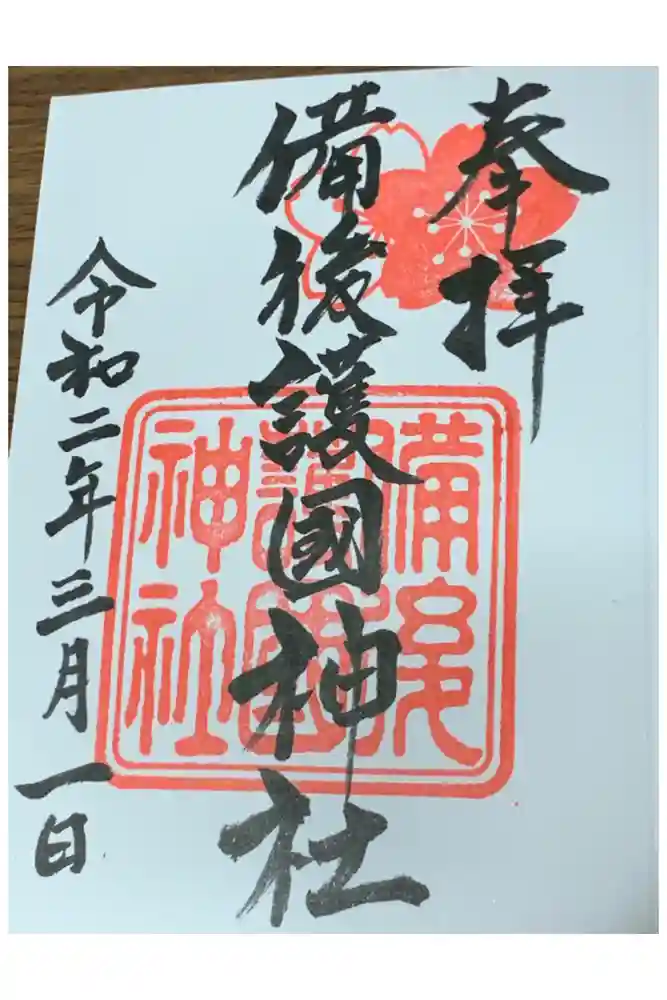 奉拝
備後護國神社
備後
護國
神社
令和二年三月一日